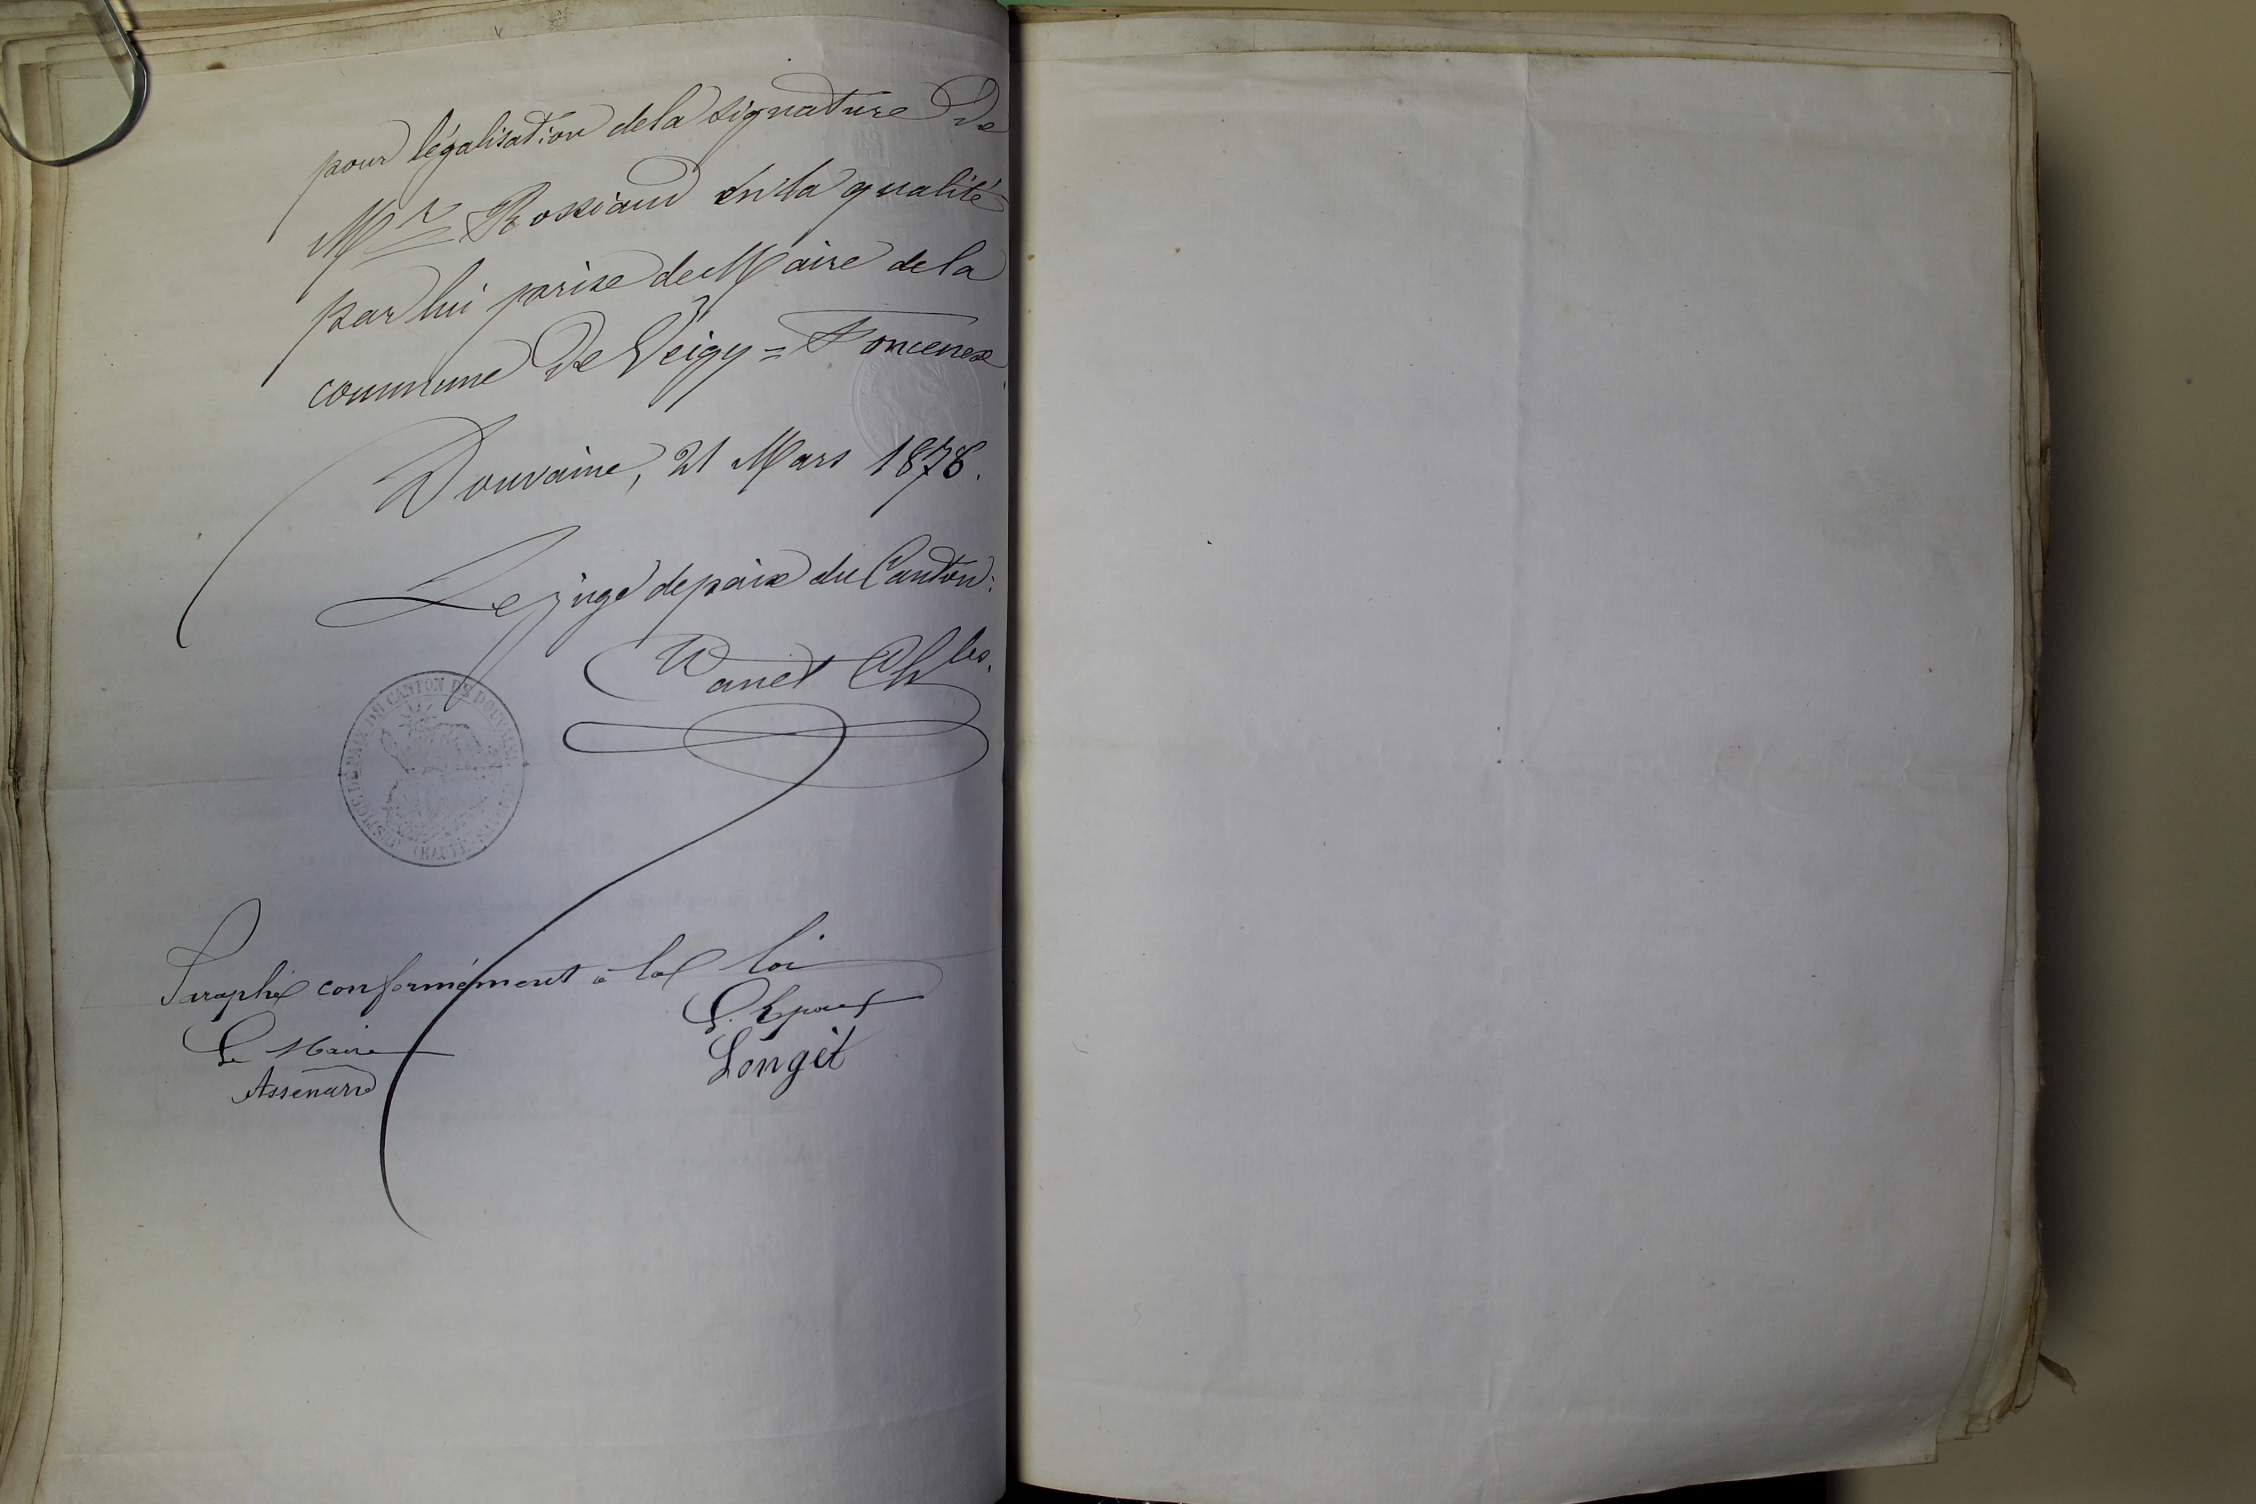 pour légalisation de la signature De
Mr Rossiaud en la qualité
par lui prise de Maire de la
commune De Veigy = Foncenex.
Douvaine, 21 Mars 1878.
Le juge de paix du Canton:
JUSTICE DE PAIX DU CANTON DE DOUVAINE
Paraphé conformément à la loi
Le Maire
L. Epoux
Longèt